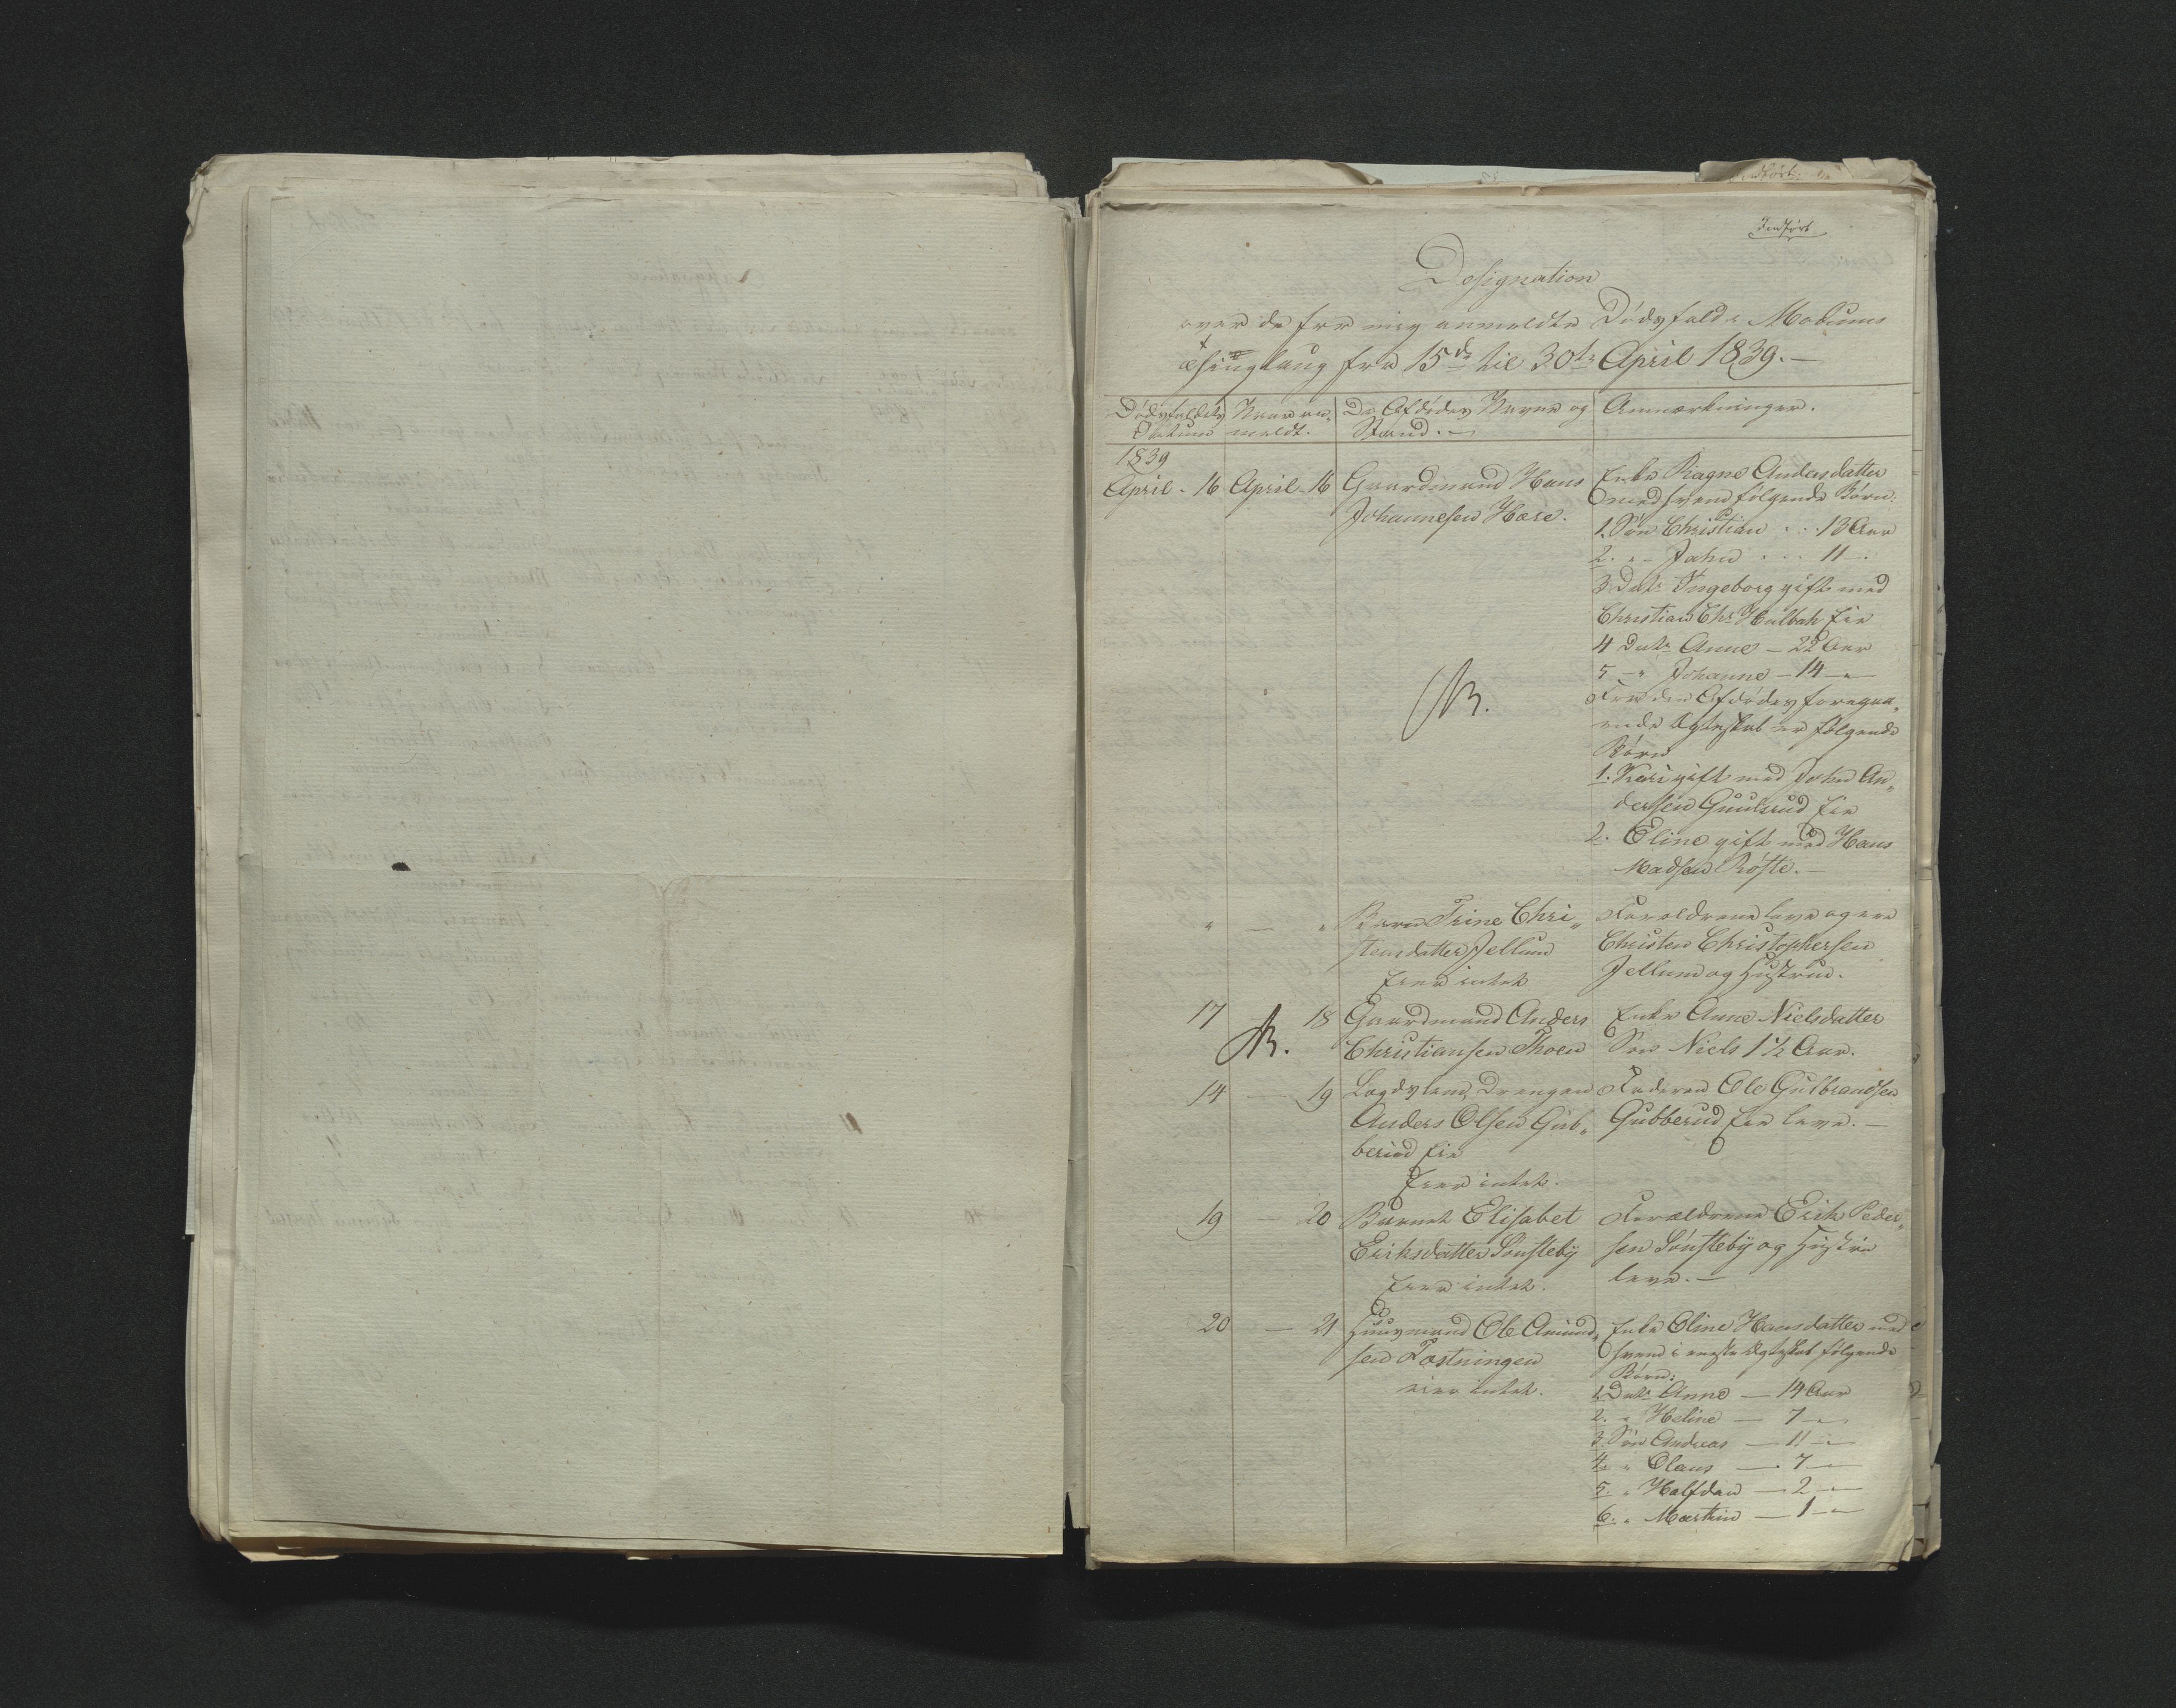 Indført
Designation
over de for mig anmeldte Dødsfald i Modums
Thinglaug fra 15de til 30te April 1839.—
Dødsfaldets Naar an„ De Afdødes Navne og Anmærkninger.
Datum meldt. Stand.—
1839
April - 16 April - 16 Gaardmand Hans
Johannesen Hære.
Enke Ragne Andersdatter
med hvem følgende Børn:
1. Søn Christian . . . 13 Aar
2. „ — John . . . 11 —
3 Datr Ingeborg gift med
Christian Chr. Hulbak Eie
4 Datr Anne — 22 Aar
5 — „ Johanne — 14 — „
For den Afdødes foregaa„
ende Ægteskab er følgende
Børn
1. Kari gift med John An„
dersen Eie
2. Eline gift med Hans
Madsen Røste.—
„ — „ Barn Trine Chri„
stensdatter Jellum
Eier intet
Forældrene leve og ere
Christen Christophersen
Jellum og Hustrue.
17 — 18 Gaardmand Anders
Christiansen Thoen
Enke Anne Nielsdatter
Søn Niels 1½ Aar.
14 — 19 Drengen
Anders Olsen Gub„
berud Eie
Eier intet.
Faderen Ole Gulbrandsen
Gubberud Eie leve.—
19 — 20 Barnet Elisabet
Eriksdatter Sønsteby
Eier intet.
Forældrene Erik Peder„
sen Sønsteby og Hustru
leve.—
20 — 21 Huusmand Ole Amund„
sen Fostningen
eier intet.
Enke Oline Hansdatter med
hvem i eneste Ægteskab følgende
Børn:
1. Datr Anne — 14 Aar
2. „ Heline — 7 — „
3. Søn Andreas — 11 — „
4. „ Olaus — 7 — „
5. „ Halfdan — 2 — „
6. „ Martin — 1 — „